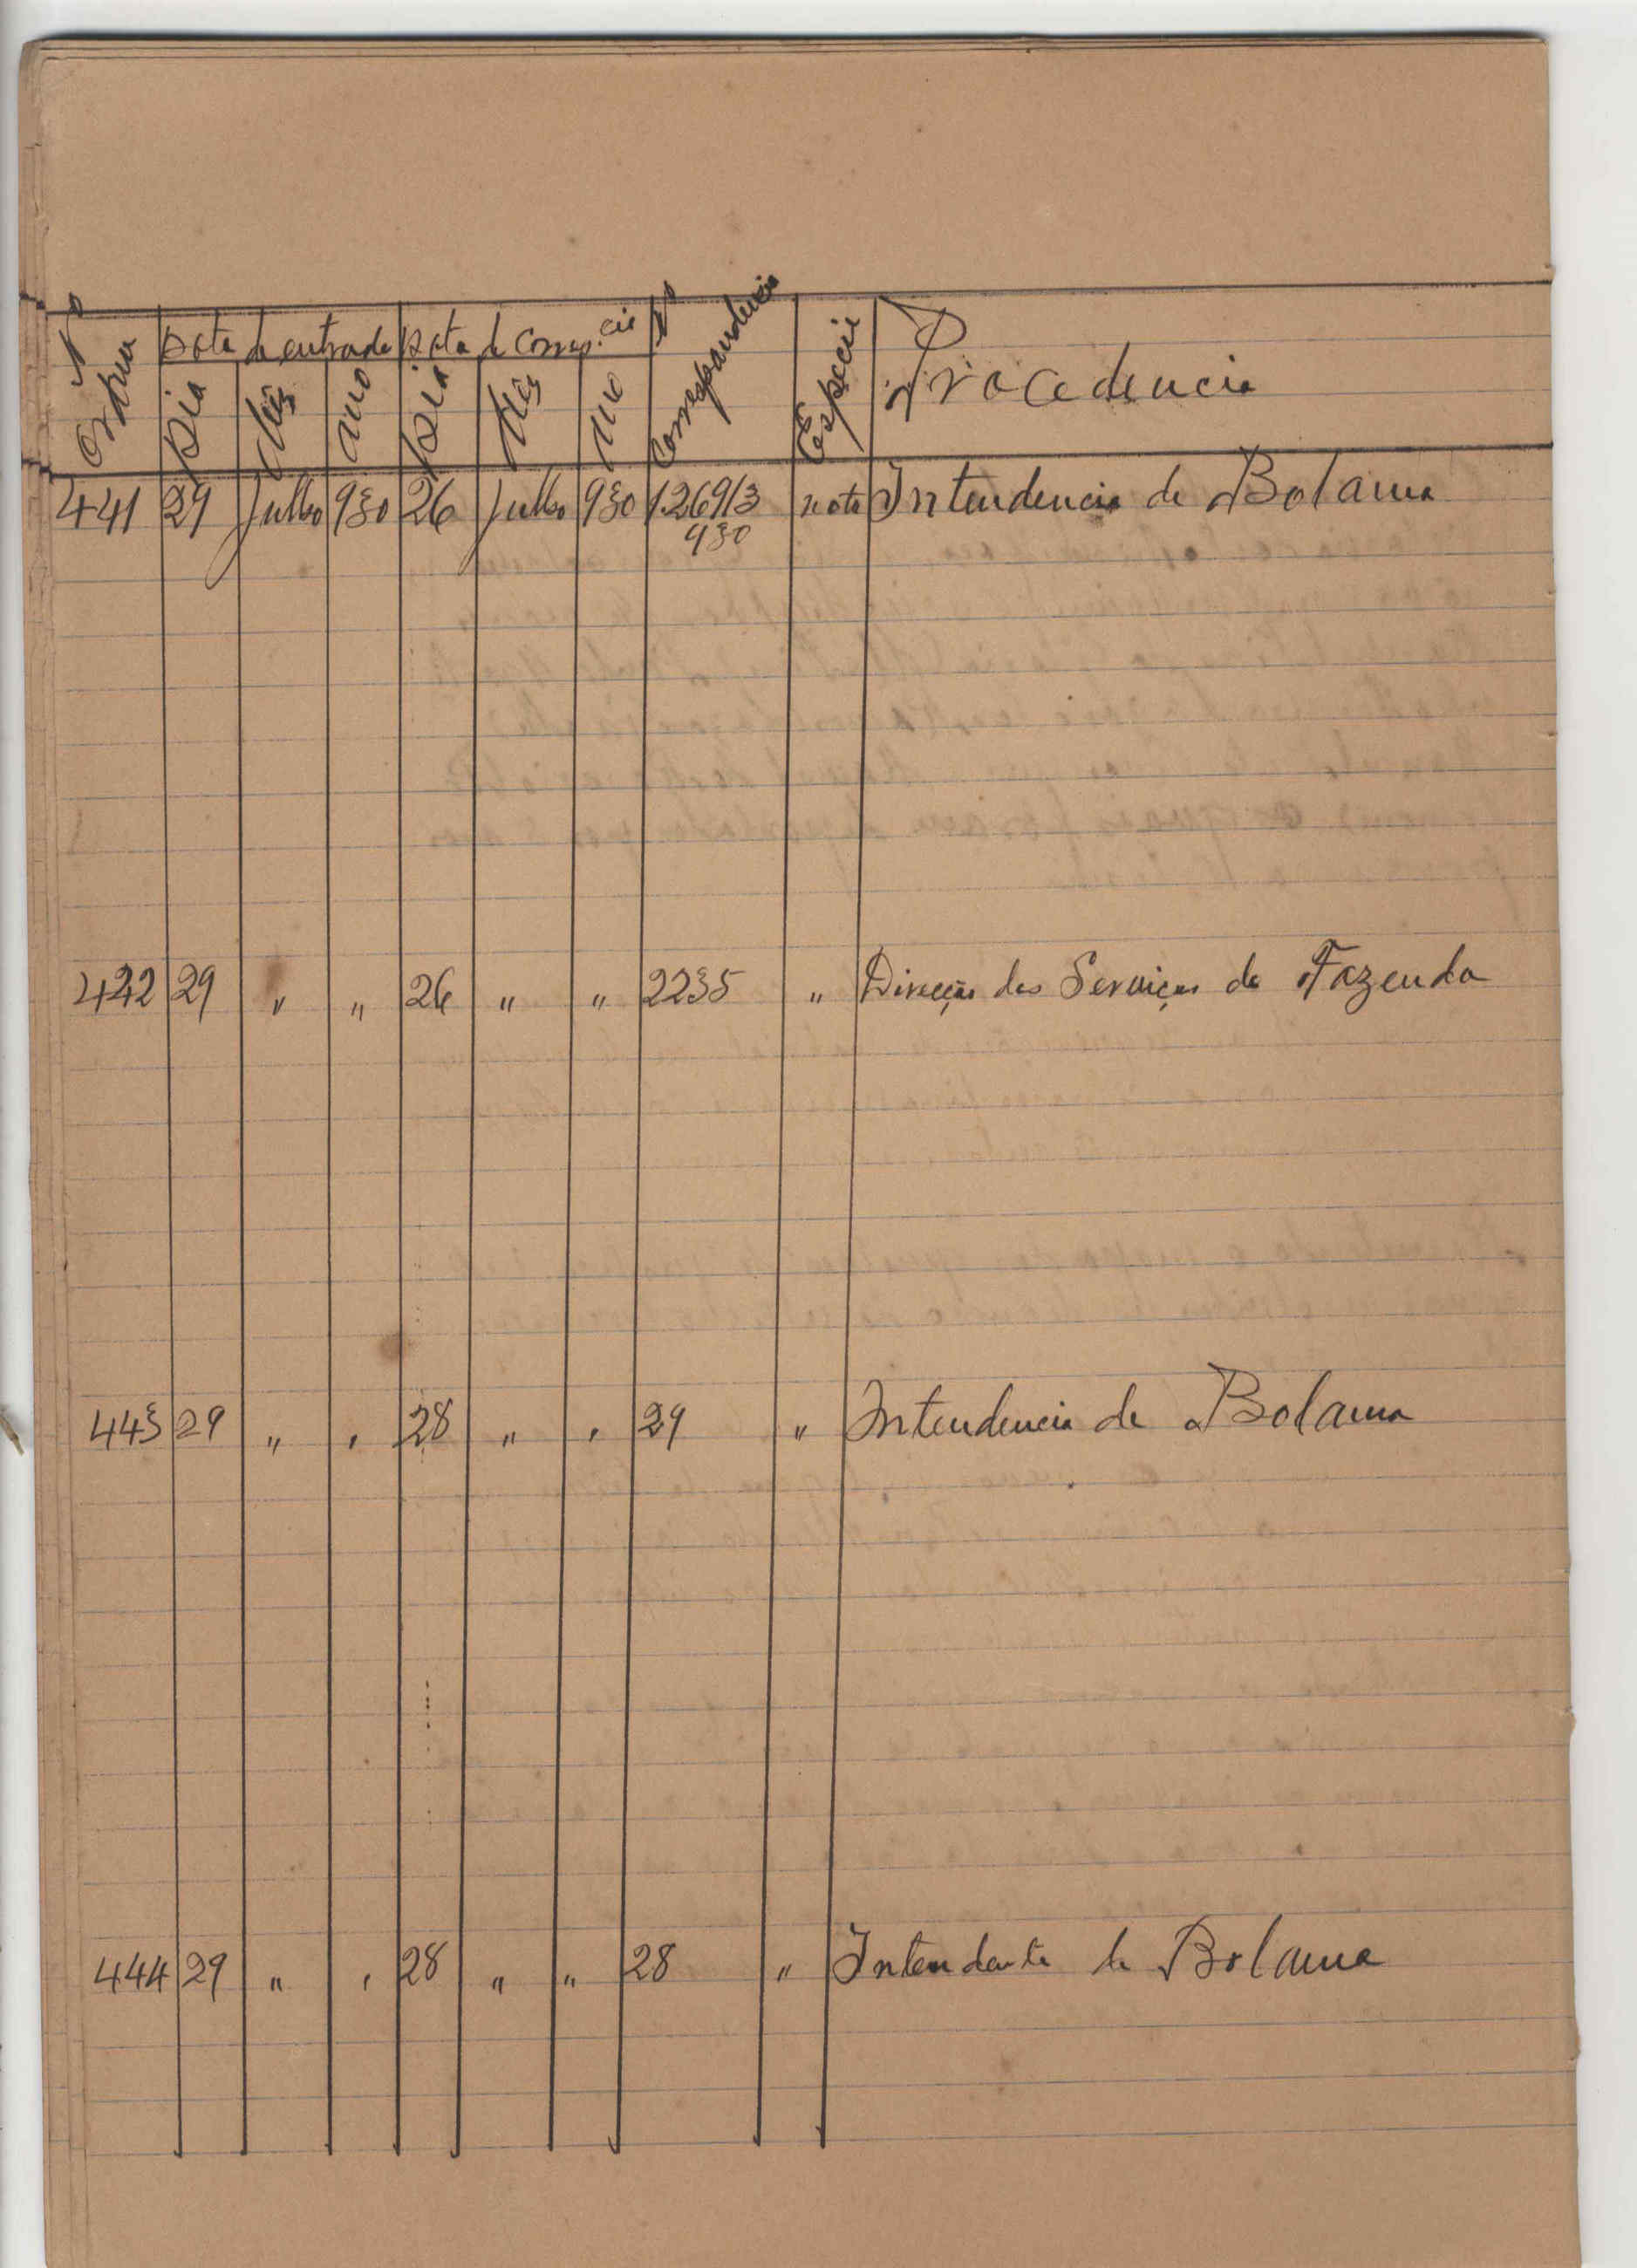 Nº Ordem | Data de entrada | Data de corresp.cia | Nº Correspondencia | Especie | Procedencia
Dia | Mês | Ano | Dia | Mês | Ano
441 | 29 | Julho | 930 | 26 | Julho | 930 | 1.269/3 | nota | Intendencia de Bolama
930
442 | 29 | " | " | 26 | " | " | 2235 | " | Direcção dos Serviços de Fazenda
443 | 29 | " | " | 28 | " | " | 29 | " | Intendencia de Bolama
444 | 29 | " | " | 28 | " | " | 28 | " | Intendente de Bolama